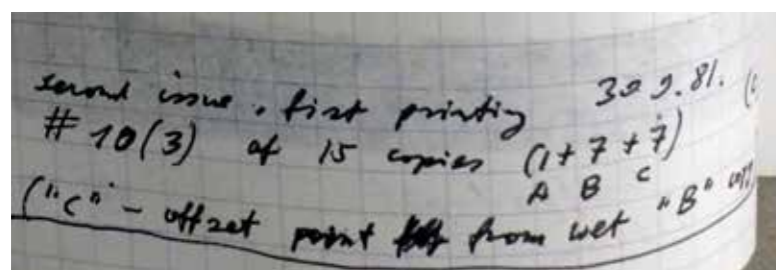 second issue, first printing 30 9.81. (
# 10(3) of 15 copies (1+7+7)
A B C
("C" – offset point from wet "B"